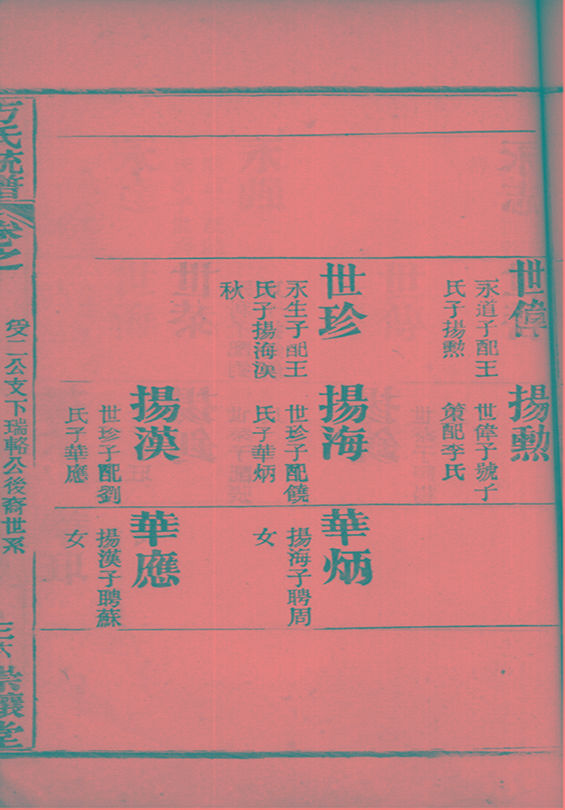 世偉
永道子配王
氏子揚勲
揚勲
世偉子號子
策配李氏
世珍
永生子配王
氏子揚海漢
秋
揚海
世珍子配饒
氏子華炳
華炳
揚海子聘周
女
揚漢
世珍子配劉
氏子華應
華應
揚漢子聘蘇
女
方氏統譜
卷之
受二公支下瑞輅公後裔世系